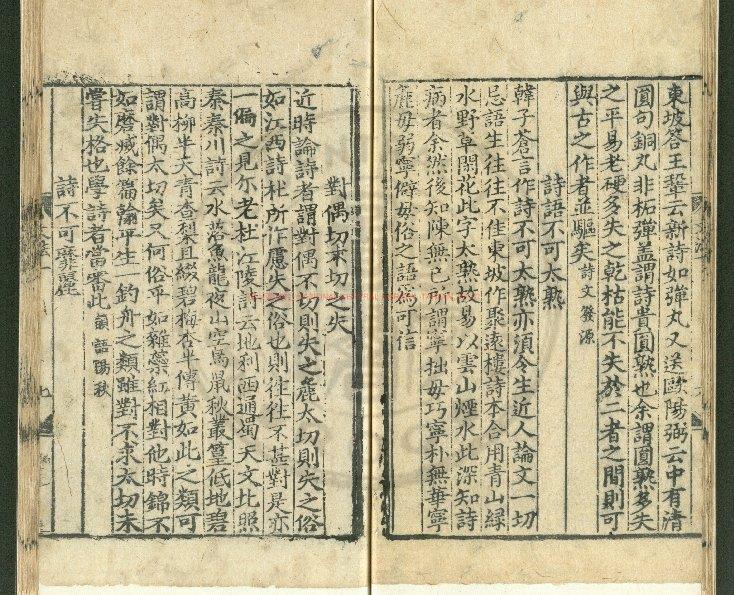 東坡答王鞏云新詩如彈丸又送歐陽弼云中有清
圓句銅丸非柘彈蓋謂詩貴圓熟也余謂圓熟多失
之平易老硬多失之乾枯能不失於二者之間則可
與古之作者並驅矣詩文發源
詩語不可太熟
韓子蒼言作詩不可太熟亦須令生近人論文一切
忌語生往往不佳東坡作聚遠樓詩本合用青山綠
水野草閑花此字太熟故易以雲山煙水此深知詩
病者余然後知陳無己所謂寧拙毋巧寧朴無華寧
麄毋弱寧僻毋俗之語為可信
對偶切不切之失
近時論詩者謂對偶不切則失之麄太切則失之俗
如江西詩社所作慮失之俗也則往往不甚對是亦
一偏之見尔老杜江陵詩云地利西通蜀天文北照
秦秦川詩云水落魚龍夜山空鳥鼠秋叢篁低地碧
高柳半天青杳梨且綴碧梅杏半傳黃如此之類可
謂對偶太切矣又何俗乎如雜蘂紅相對他時錦不
如磨滅餘篇翰平生一釣舟之類雖對不求太切未
嘗失格也學詩者當審此韻語陽秋
詩不可